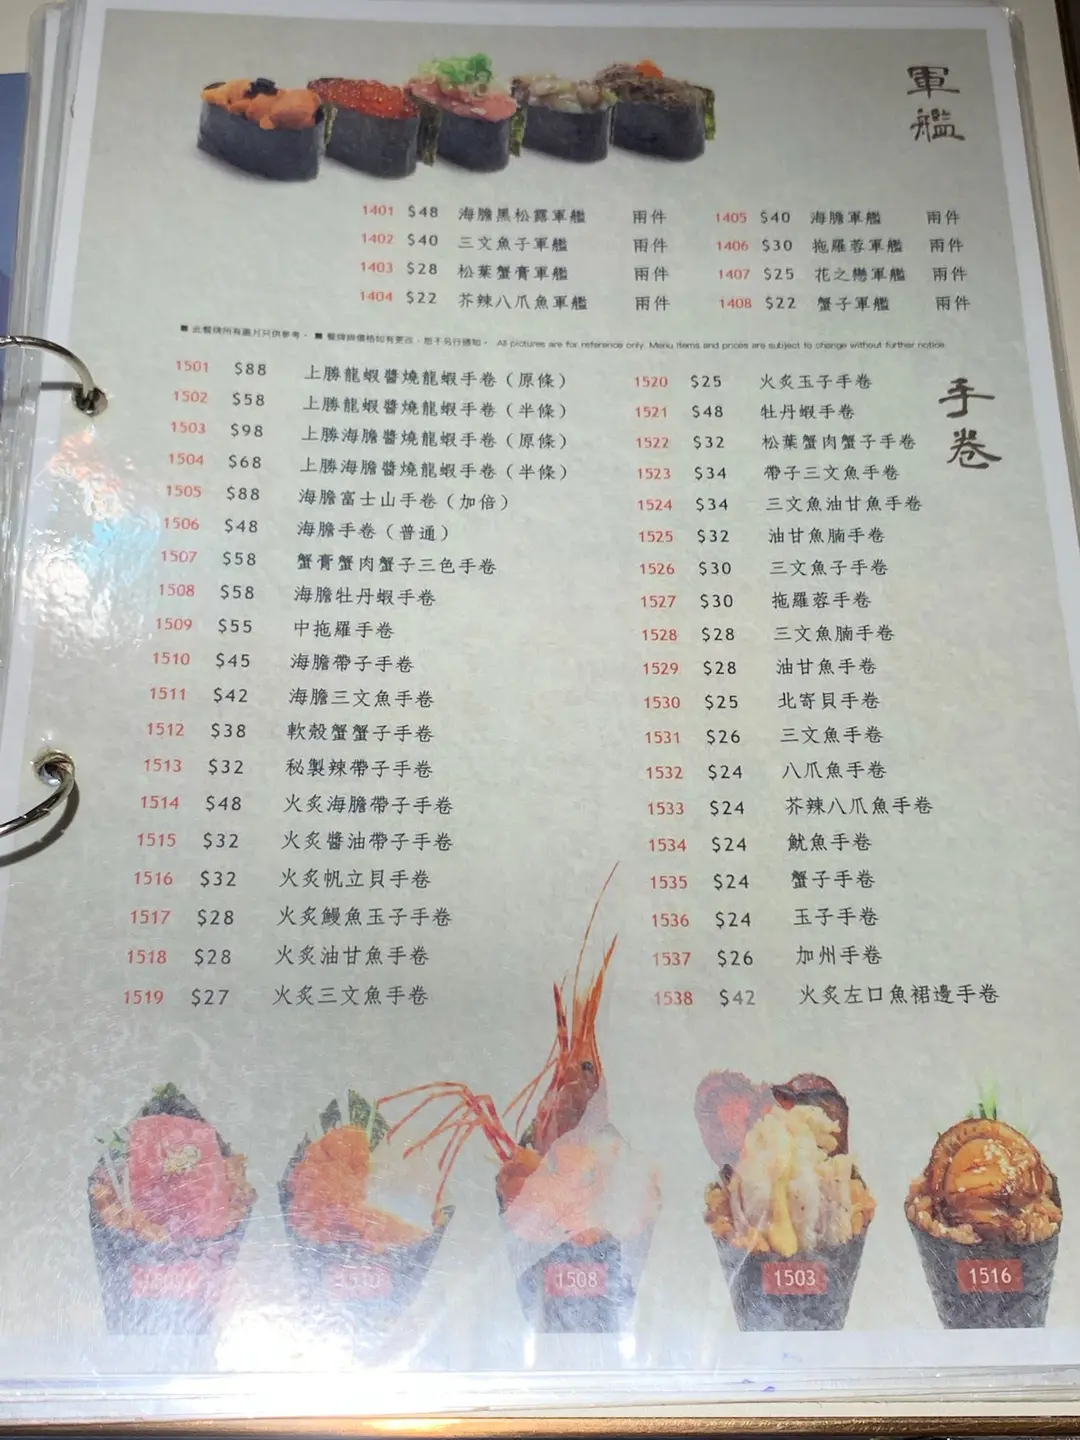 軍艦
1401 $48 海膽黑松露軍艦 兩件
1402 $40 三文魚子軍艦 兩件
1403 $28 松葉蟹膏軍艦 兩件
1404 $22 芥辣八爪魚軍艦 兩件
1405 $40 海膽軍艦 兩件
1406 $30 拖羅蓉軍艦 兩件
1407 $25 花之戀軍艦 兩件
1408 $22 蟹子軍艦 兩件
■ 此餐牌所有圖片只供參考。 ■ 餐牌與價格如有更改，恕不另行通知。 All pictures are for reference only. Menu items and prices are subject to change without further notice.
手卷
1501 $88 上勝龍蝦醬燒龍蝦手卷（原條）
1502 $58 上勝龍蝦醬燒龍蝦手卷（半條）
1503 $98 上勝海膽醬燒龍蝦手卷（原條）
1504 $68 上勝海膽醬燒龍蝦手卷（半條）
1505 $88 海膽富士山手卷（加倍）
1506 $48 海膽手卷（普通）
1507 $58 蟹膏蟹肉蟹子三色手卷
1508 $58 海膽牡丹蝦手卷
1509 $55 中拖羅手卷
1510 $45 海膽帶子手卷
1511 $42 海膽三文魚手卷
1512 $38 軟殼蟹蟹子手卷
1513 $32 秘製辣帶子手卷
1514 $48 火炙海膽帶子手卷
1515 $32 火炙醬油帶子手卷
1516 $32 火炙帆立貝手卷
1517 $28 火炙鰻魚玉子手卷
1518 $28 火炙油甘魚手卷
1519 $27 火炙三文魚手卷
1520 $25 火炙玉子手卷
1521 $48 牡丹蝦手卷
1522 $32 松葉蟹肉蟹子手卷
1523 $34 帶子三文魚手卷
1524 $34 三文魚油甘魚手卷
1525 $32 油甘魚腩手卷
1526 $30 三文魚子手卷
1527 $30 拖羅蓉手卷
1528 $28 三文魚腩手卷
1529 $28 油甘魚手卷
1530 $25 北寄貝手卷
1531 $26 三文魚手卷
1532 $24 八爪魚手卷
1533 $24 芥辣八爪魚手卷
1534 $24 魷魚手卷
1535 $24 蟹子手卷
1536 $24 玉子手卷
1537 $26 加州手卷
1538 $42 火炙左口魚裙邊手卷
1509
1510
1508
1503
1516